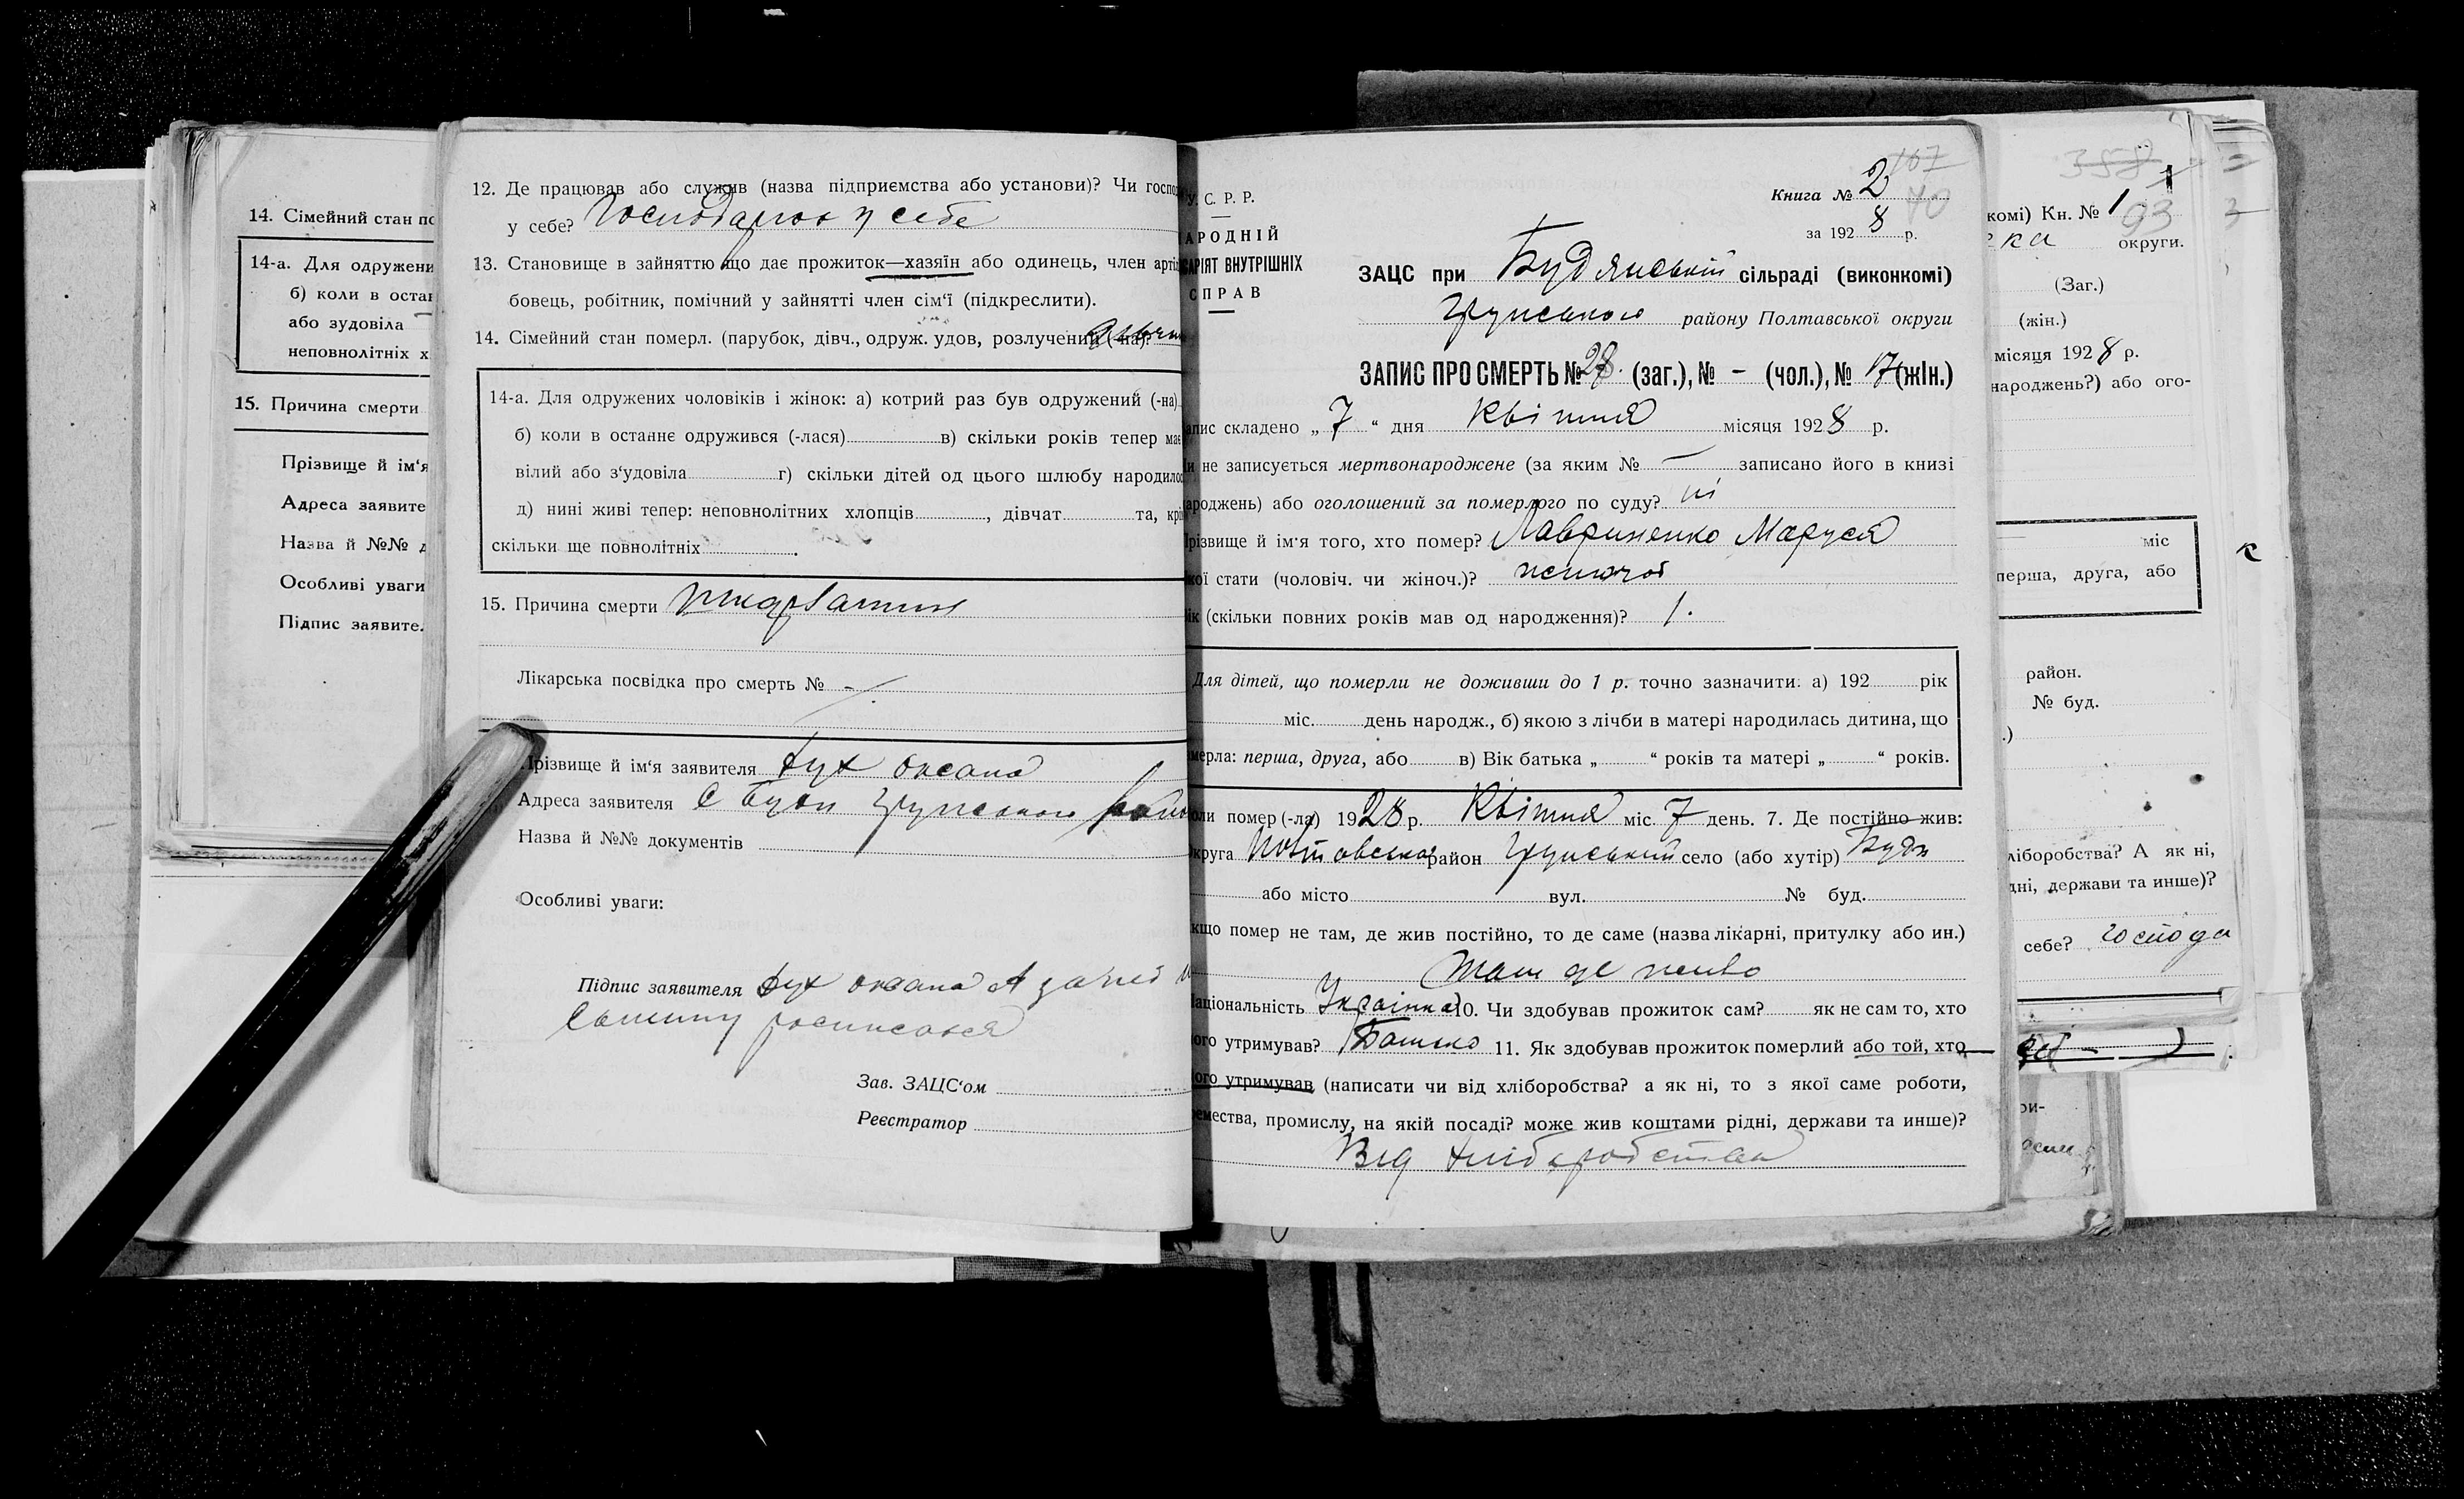 14. Сімейний стан по
14-а. Для одружени
б) коли в остан
або зудовіла
неповнолітніх х
15. Причина смерти
Прізвище й ім‘я
Адреса заявите
Назва й №№ д
Особливі уваги
Підпис заявите.
12. Де працював або служив (назва підприємства або установи)? Чи госпо
у себе? Господарює у себе
13. Становище в зайняттю що дає прожиток—хазяїн або одинець, член арті
бовець, робітник, помічний у зайнятті член сім‘ї (підкреслити).
14. Сімейний стан померл. (парубок, дівч., одруж. удов, розлучений (-на)?
14-а. Для одружених чоловіків і жінок: а) котрий раз був одружений (-на)
б) коли в останнє одружився (-лася) в) скільки років тепер має
вілий або з‘удовіла г) скільки дітей од цього шлюбу народилос
д) нині живі тепер: неповнолітніх хлопців , дівчат та, крі
скільки ще повнолітніх .
15. Причина смерти
Лікарська посвідка про смерть № -
Прізвище й ім‘я заявителя Бух Оксана
Адреса заявителя с Буди Грунського
Назва й №№ документів
Особливі уваги:
Підпис заявителя Бух Оксана А за неї
росписався
Зав. ЗАЦС‘ом
Реєстратор
У. С. Р. Р.
НАРОДНІЙ
АРІЯТ ВНУТРІШНІХ
СПРАВ
107
70
Книга № 2
за 192 8 р.
ЗАЦС при Будянській сільраді (виконкомі)
Грунського району Полтавської округи
ЗАПИС ПРО СМЕРТЬ № 28. (заг.), № - (чол.), № 17 (жін.)
апис складено „ 7 “ дня Квітня місяця 192 8 р.
и не записується мертвонароджене (за яким № — записано його в книзі
ароджень) або оголошений за померлого по суду? ні
різвище й ім‘я того, хто помер? Лавриненко Маруся
кої стати (чоловіч. чи жіноч.)? жіночої
ік (скільки повних років мав од народження)? 1.
Для дітей, що померли не доживши до 1 р. точно зазначити: а) 192 рік
міс. день народж., б) якою з лічби в матері народилась дитина, що
мерла: перша, друга, або в) Вік батька „ “ років та матері „ “ років.
оли помер (-ла) 1928 р. Квітня міс. 7 день. 7. Де постійно жив:
круга Полтавська район Грунський село (або хутір) Буди
або місто вул. № буд.
кщо помер не там, де жив постійно, то де саме (назва лікарні, притулку або ин.)
там де жив
аціональність Українка 10. Чи здобував прожиток сам? як не сам то, хто
ого утримував? Батько 11. Як здобував прожиток померлий або той, хто
ого утримував (написати чи від хліборобства? а як ні, то з якої саме роботи,
емества, промислу, на якій посаді? може жив коштами рідні, держави та инше)?
Від хліборобства
358
1
комі) Кн. № 1 93
ка округи.
(Заг.)
(жін.)
місяця 192 8 р.
народжень?) або ого-
міс
перша, друга, або
район.
№ буд.
.)
ліборобства? А як ні,
дні, держави та инше)?
себе? господа